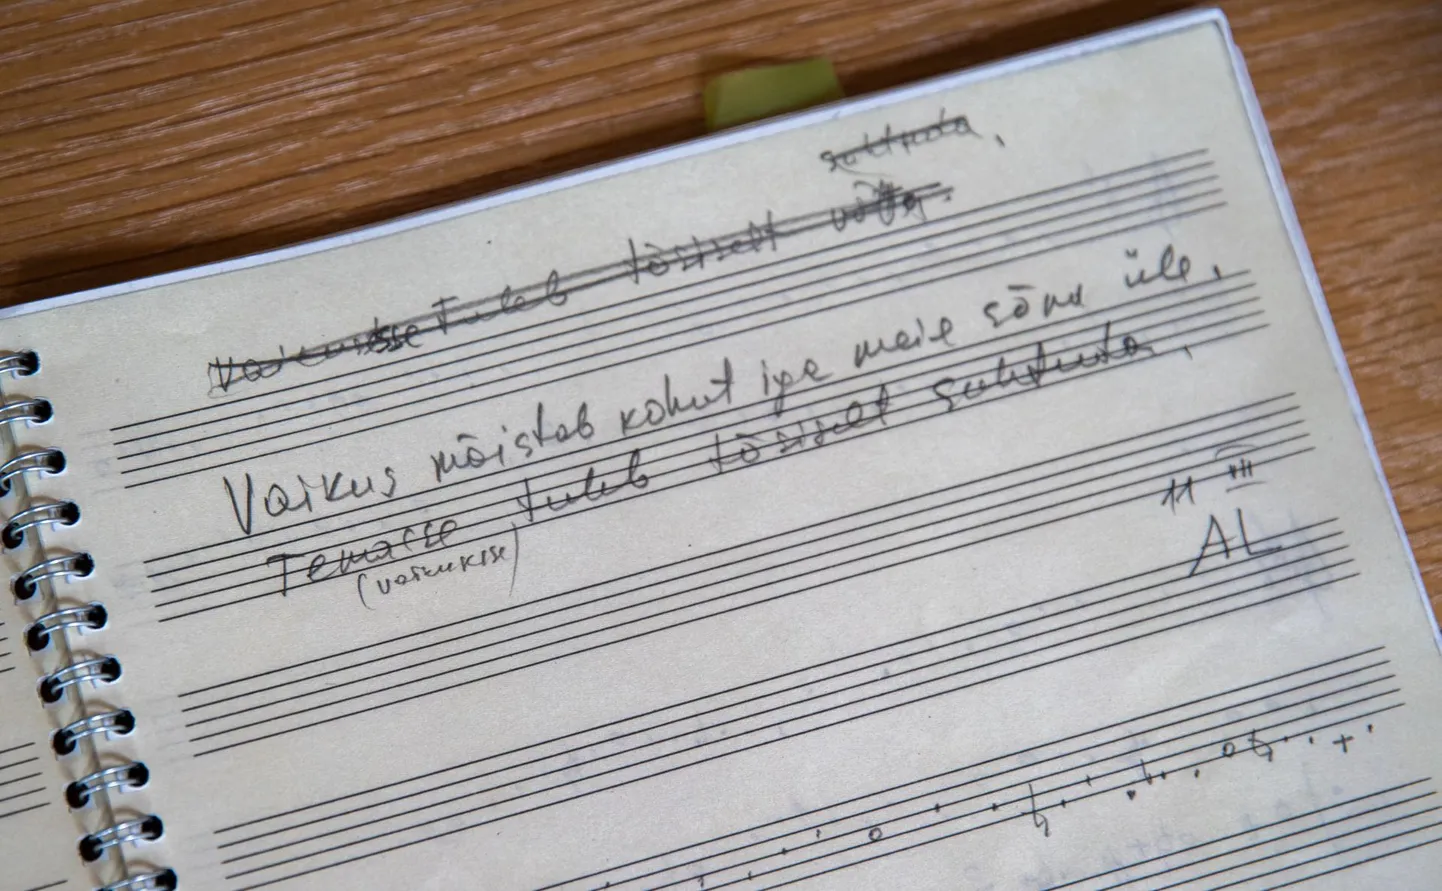 suhtuda,
Vaikusse Tuleb tõsiselt võtta.
Vaikus mõistab kohut iga meie sõna üle,
Temasse tuleb tõsiselt suhtuda,
(vaikusse)
11 VIII
AL